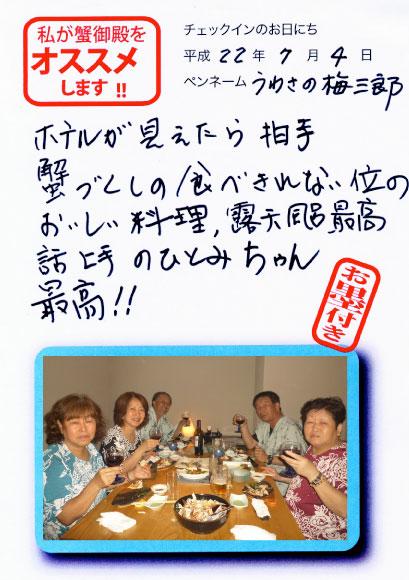 私が蟹御殿を
オススメ
します!!
チェックインのお日にち
平成 22年 7月 4日
ペンネーム うわさの梅三郎
ホテルが見えたら拍手
蟹づくしの食べきれない位の
おいしい料理,露天風呂最高
話上手のひとみちゃん
最高!!
お墨付き